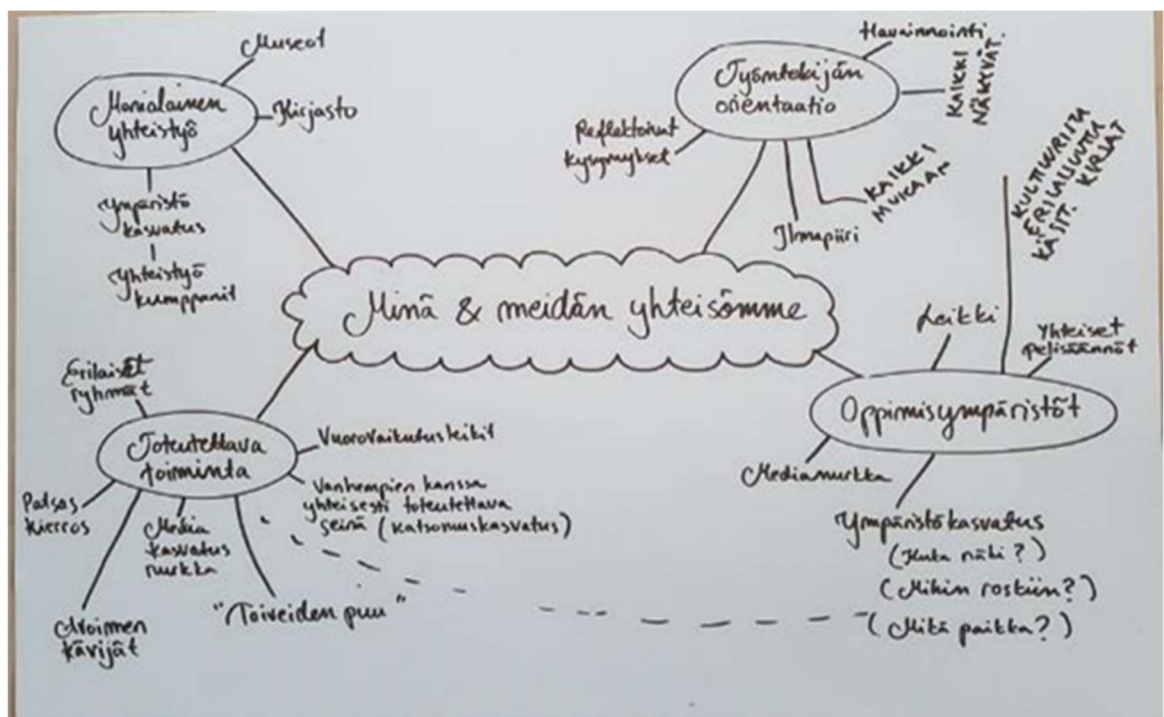 Minä & meidän yhteisömme
Monialainen
yhteistyö
Museot
Kirjasto
Ympäristö
kasvatus
Yhteistyö
kumppanit
Työntekijän
orientaatio
Havainnointi
KAIKKI
NÄKYVÄT.
KAIKKI
MUKAAN
Ilmapiiri
Reflektoivat
kysymykset
Oppimisympäristöt
Leikki
KULTTUURISTA
ERILAISUUTTA
KÄSIT. KIRJAT
Yhteiset
pelisäännöt
Medianurkka
Ympäristökasvatus
(Kuka näki?)
(Mihin roskiin?)
(Mikä paikka?)
Toteutettava
toiminta
Erilaiset
ryhmät
Vuorovaikutusleikit
Vanhempien kanssa
yhteisesti toteutettava
seinä (katsomuskasvatus)
"Toiveiden puu"
Media
kasvatus
nurkka
Avoimen
kävijät
Patsas
kierros